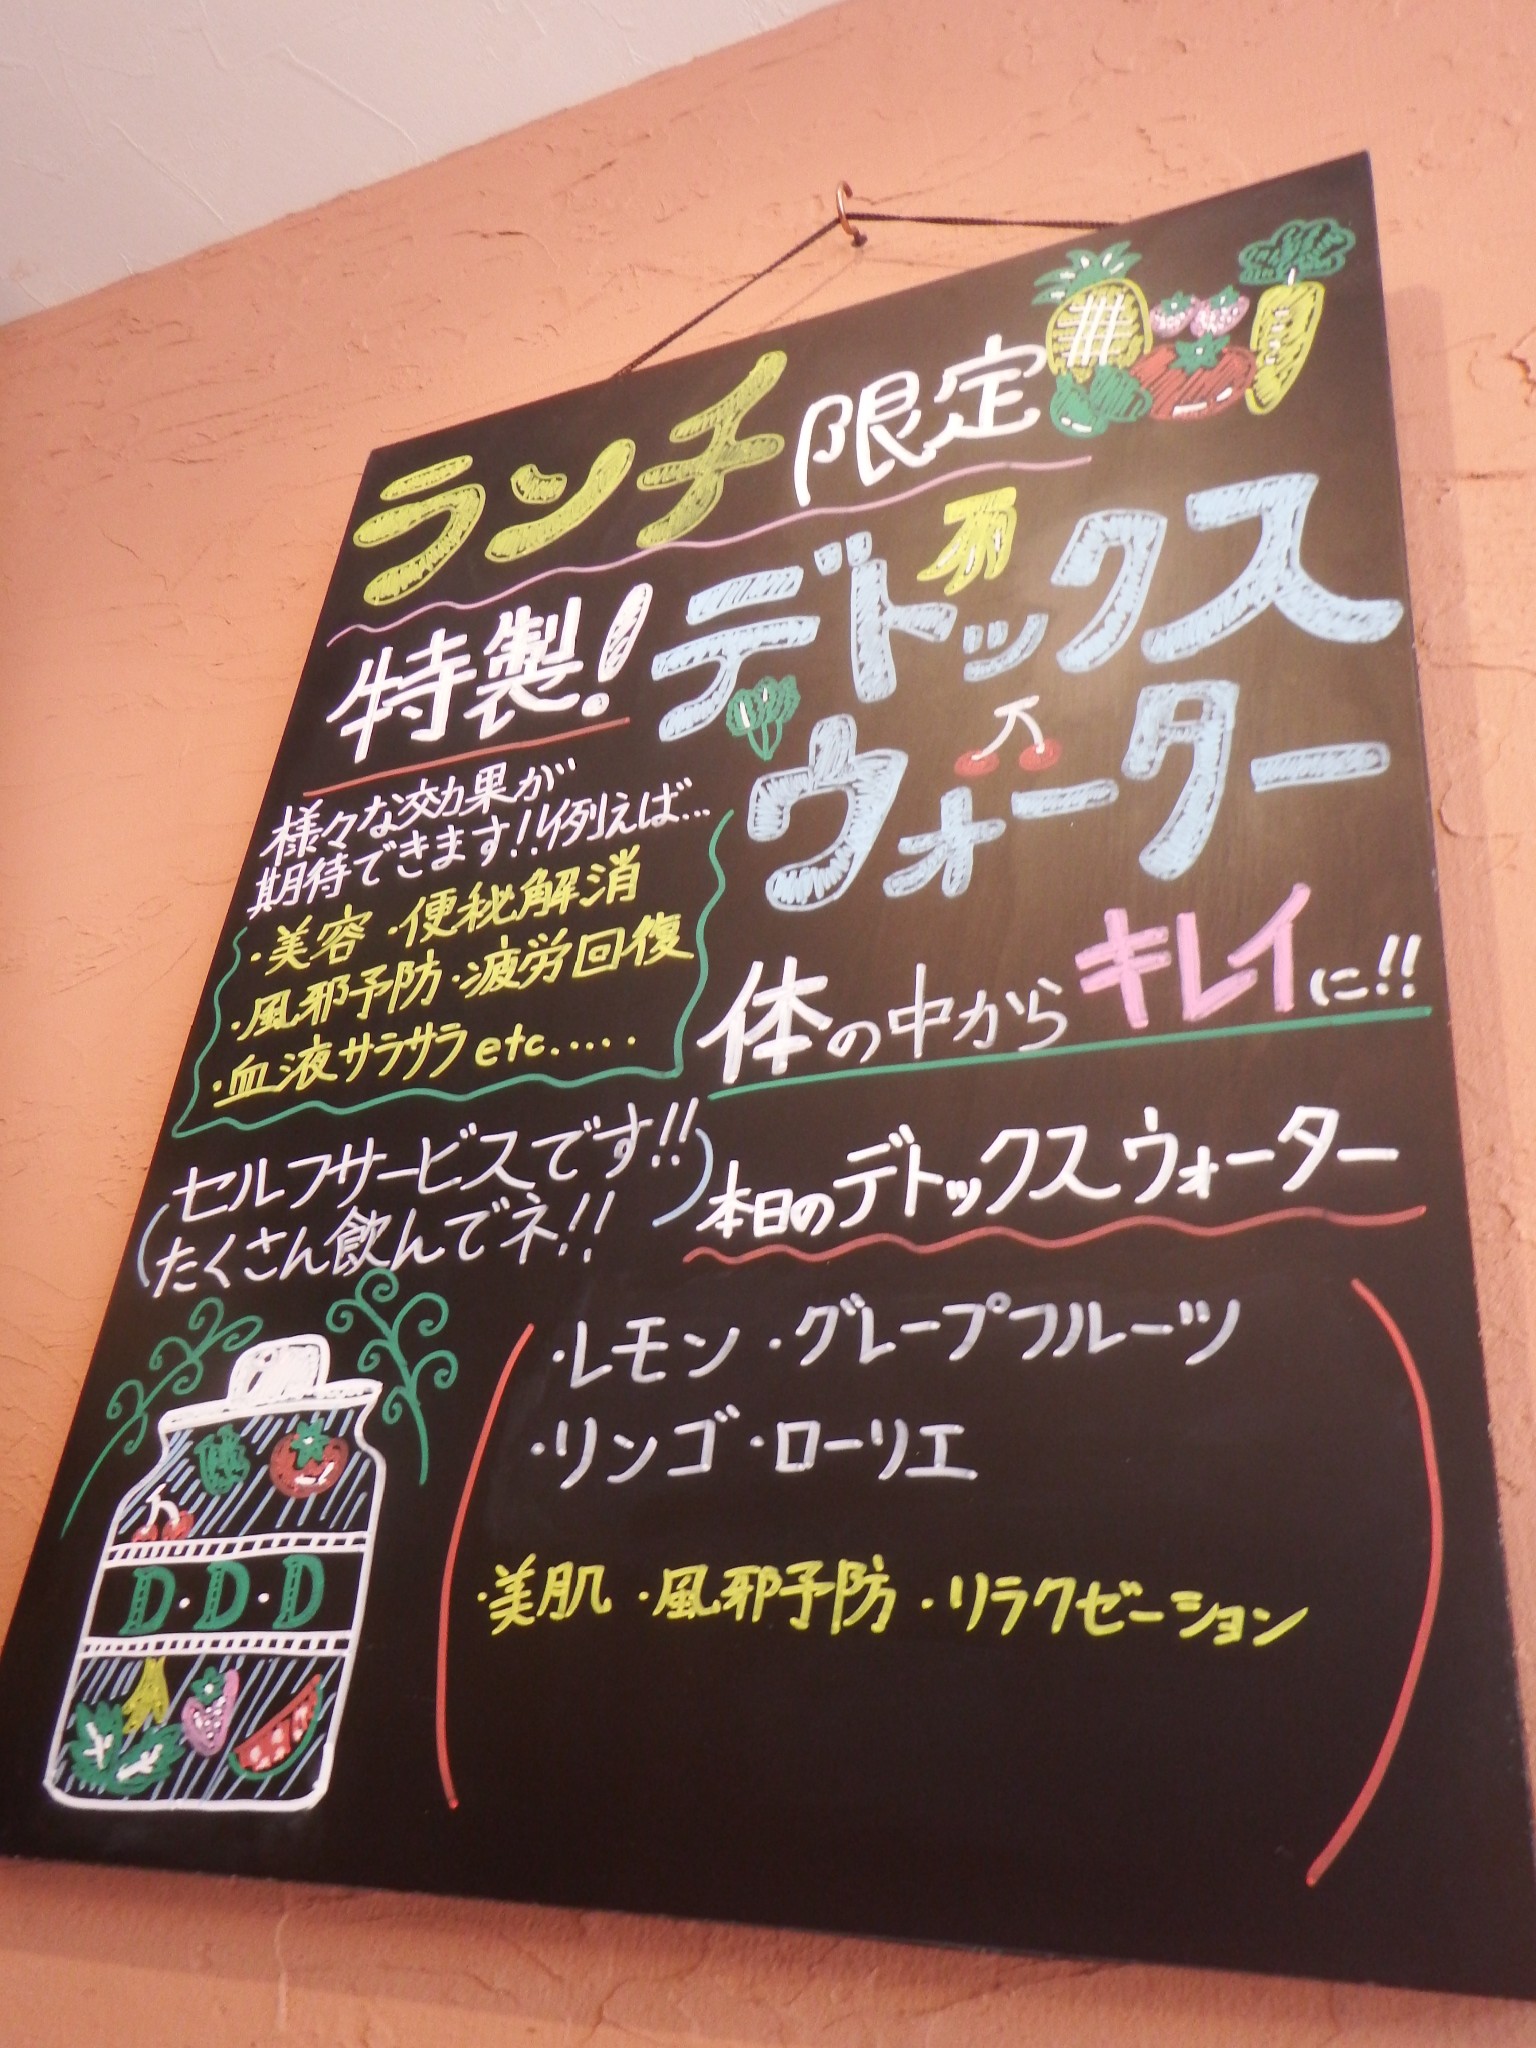 ランチ限定
特製!デトックス
ウォーター
様々な効果が
期待できます!!例えば...
・美容 ・便秘解消
・風邪予防・疲労回復
・血液サラサラ etc.....
体の中からキレイに!!
セルフサービスです!!
たくさん飲んでネ!!
本日のデトックスウォーター
・レモン ・グレープフルーツ
・リンゴ ・ローリエ
・美肌 ・風邪予防 ・リラクゼーション
D・D・D